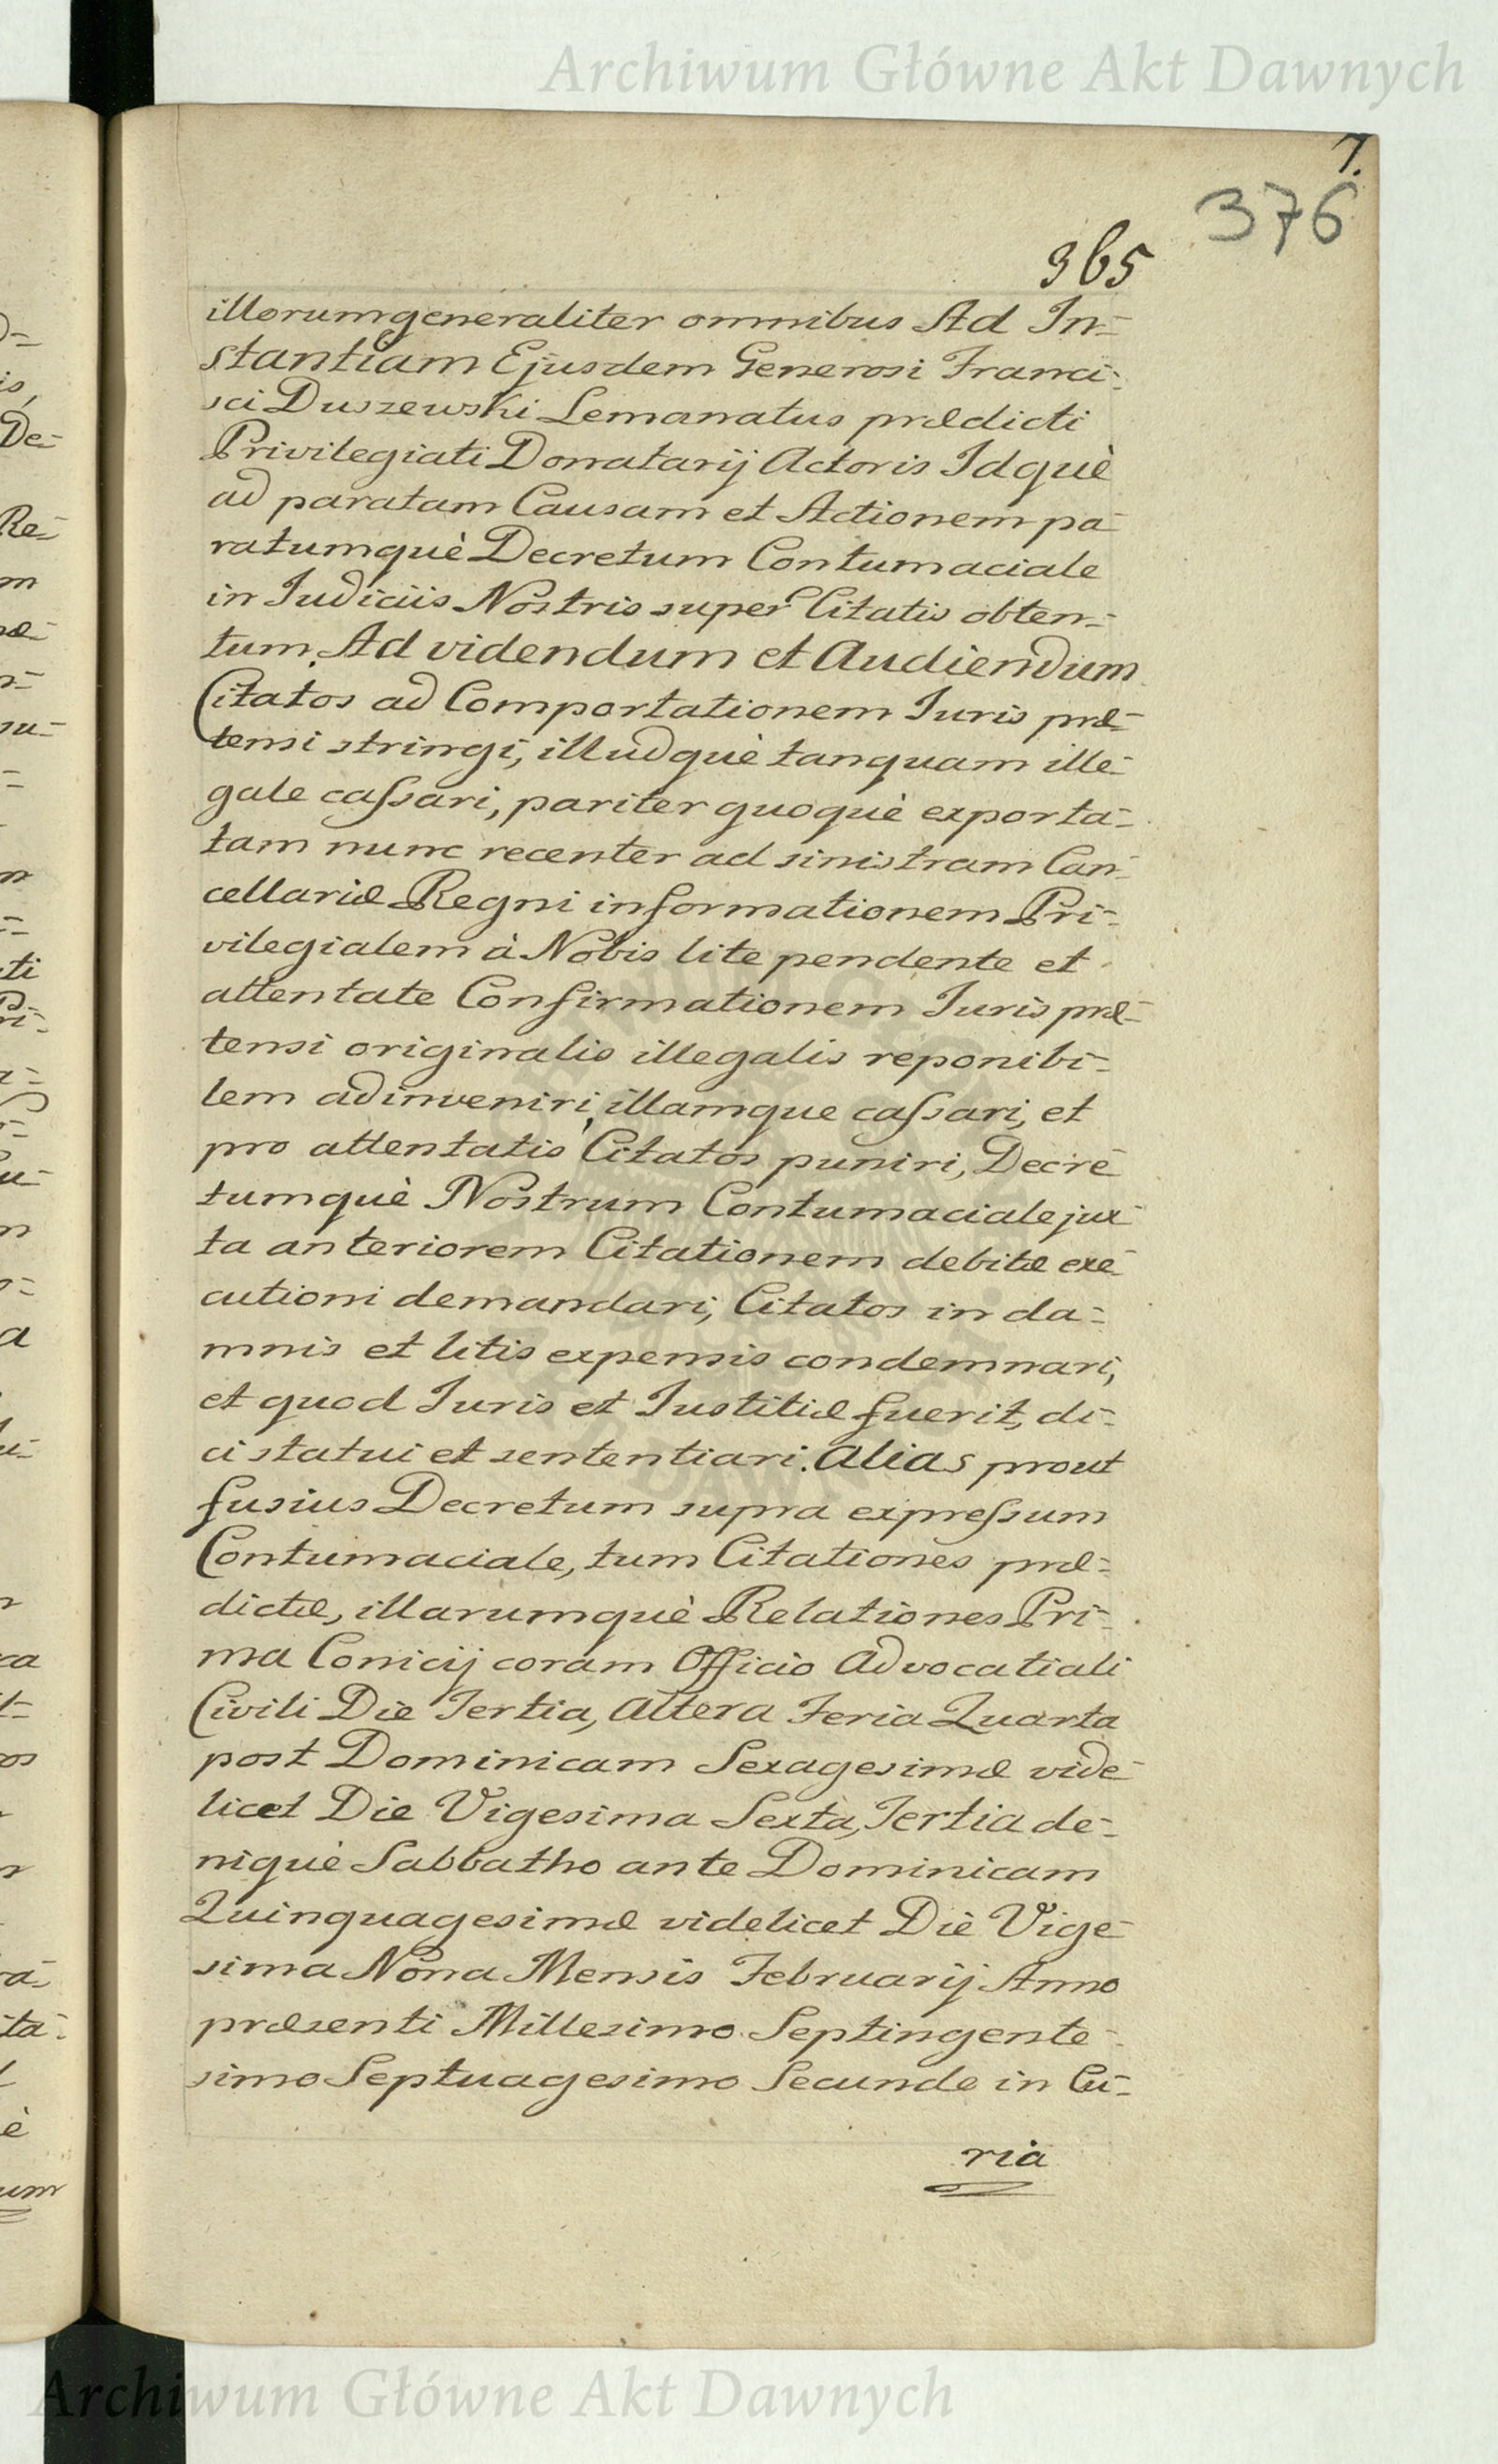 Archiwum Główne Akt Dawnych
7.
376
365
illorum generaliter omnibus Ad In=
stantiam Ejusdem Generosi Franci=
sci Duszewski Lemanatus prædicti
Privilegiati Donatarij Actoris Idquè
ad paratam Causam et Actionem pa=
ratumquè Decretum Contumaciale
in Judiciis Nostris super Citatis obten=
tum. Ad videndum et Audiendum
Citatos ad Comportationem Juris præ=
tensi stringi, illudquè tanquam ille=
gale cassari, pariter quoquè exporta=
tam nunc recenter ad sinistram Can=
cellariæ Regni informationem Pri=
vilegialem à Nobis lite pendente et
attentate Confirmationem Juris præ=
tensi originalis illegalis reponibi=
lem adinveniri, illamque cassari, et
pro attentatis Citatos puniri, Decre=
tumquè Nostrum Contumaciale jux=
ta anteriorem Citationem debitæ exe=
cutioni demandari, Citatos in da=
mnis et litis expensis condemnari,
et quod Juris et Justitiæ fuerit, di=
ci statui et sententiari. Alias prout
fusius Decretum supra expressum
Contumaciale, tum Citationes præ=
dictæ, illarumquè Relationes Pri=
ma Conicij coram Officio Advocatiali
Civili Die Tertia, Altera Feria Quarta
post Dominicam Sexagesimæ vide=
licet Die Vigesima Sexta, Tertia de=
niquè Sabbatho ante Dominicam
Quinquagesimæ videlicet Die Vige=
sima Nona Mensis Februarij Anno
præsenti Millesimo Septingente=
simo Septuagesimo Secundo in Cu=
ria
Archiwum Główne Akt Dawnych